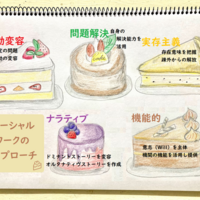 動変容
問題解決
自身の
解決能力を
活用
実存主義
存在意味を把握
疎外からの解放
ソーシャル
ワークの
プローチ
ナラティブ
ドミナントストーリーを変容
オルタナティヴストーリーを作成
機能的
意志(Will)を主体
機関の機能を活用し提供